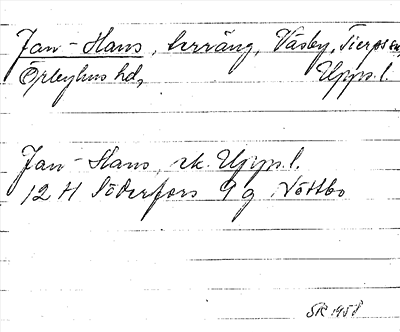 Jan-Hans, herräng, Väsby, Tierps sn,
Örbyhus hd, Uppl.
Jan-Hans, rk. Uppl.
12 H Söderfors 9 g Nöttbo
SR 1958